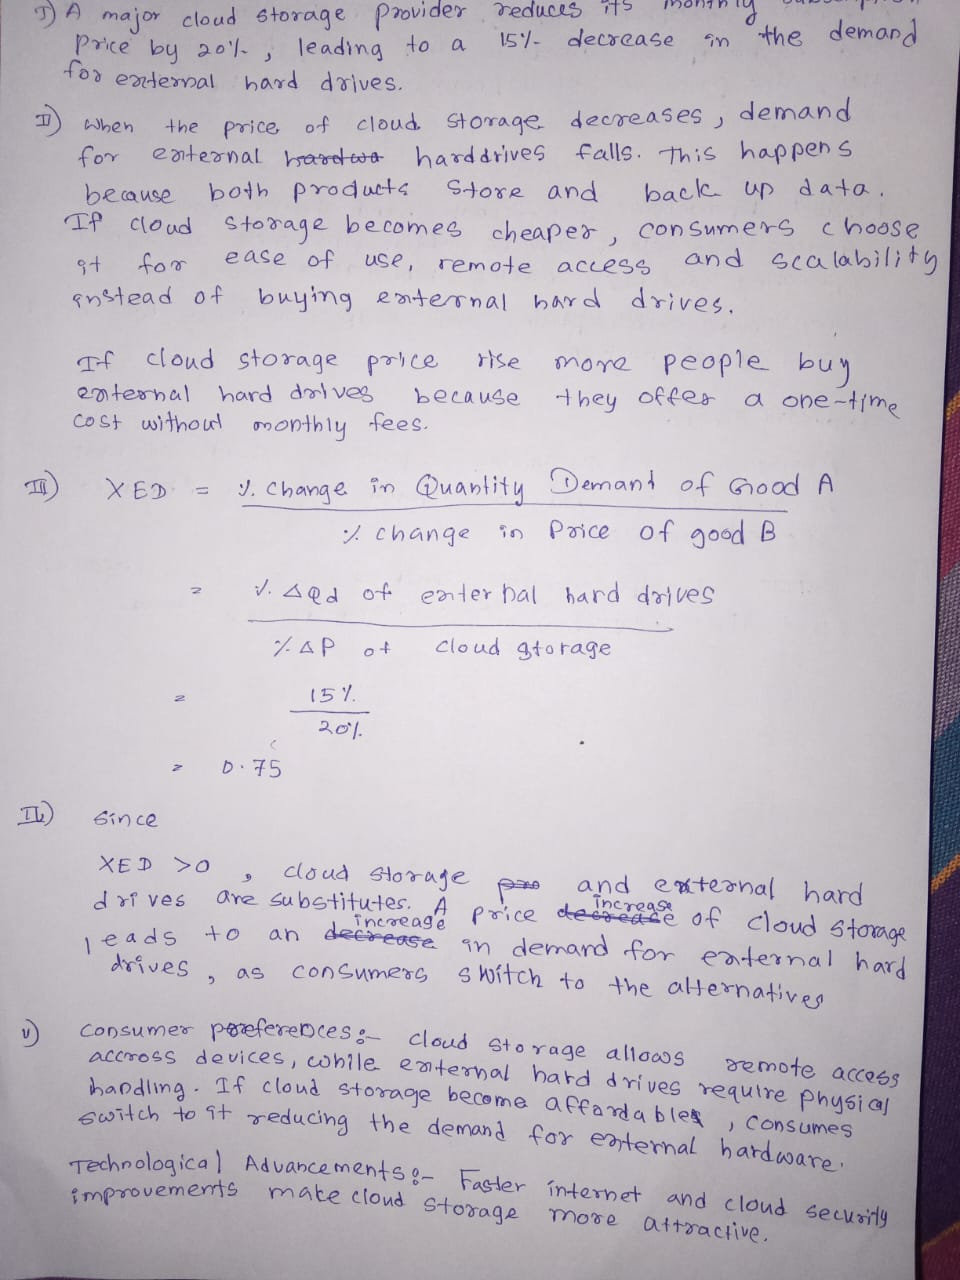 I) A major cloud storage provider reduces its monthly
price by 20%, leading to a 15% decrease in the demand
for external hard drives.
II) When the price of cloud storage decreases, demand
for external hard drives falls. This happens
because both products store and back up data.
If cloud storage becomes cheaper, consumers choose
it for ease of use, remote access and scalability
instead of buying external hard drives.
If cloud storage price rise more people buy
external hard drives because they offer a one-time
cost without monthly fees.
III) XED = % change in Quantity Demand of Good A
% change in Price of good B
= % ΔQd of external hard drives
% ΔP of cloud storage
= 15%
20%
= 0.75
IV) Since
XED >0, cloud storage and external hard
drives are substitutes. A price increase of cloud storage
leads to an increase in demand for external hard
drives, as consumers switch to the alternatives
V) Consumer preferences:- cloud storage allows remote access
accross devices, while external hard drives require physical
handling. If cloud storage become affordables, consumes
switch to it reducing the demand for external hardware.
Technological Advancements:- Faster internet and cloud security
improvements make cloud storage more attractive.